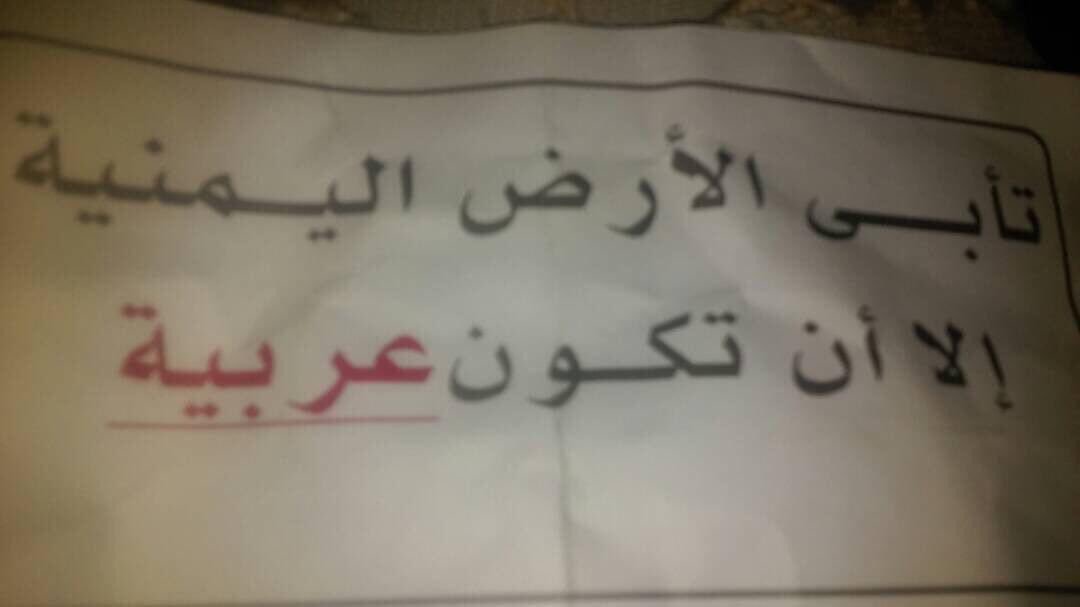 تأبى الأرض اليمنية
إلا أن تكون عربية